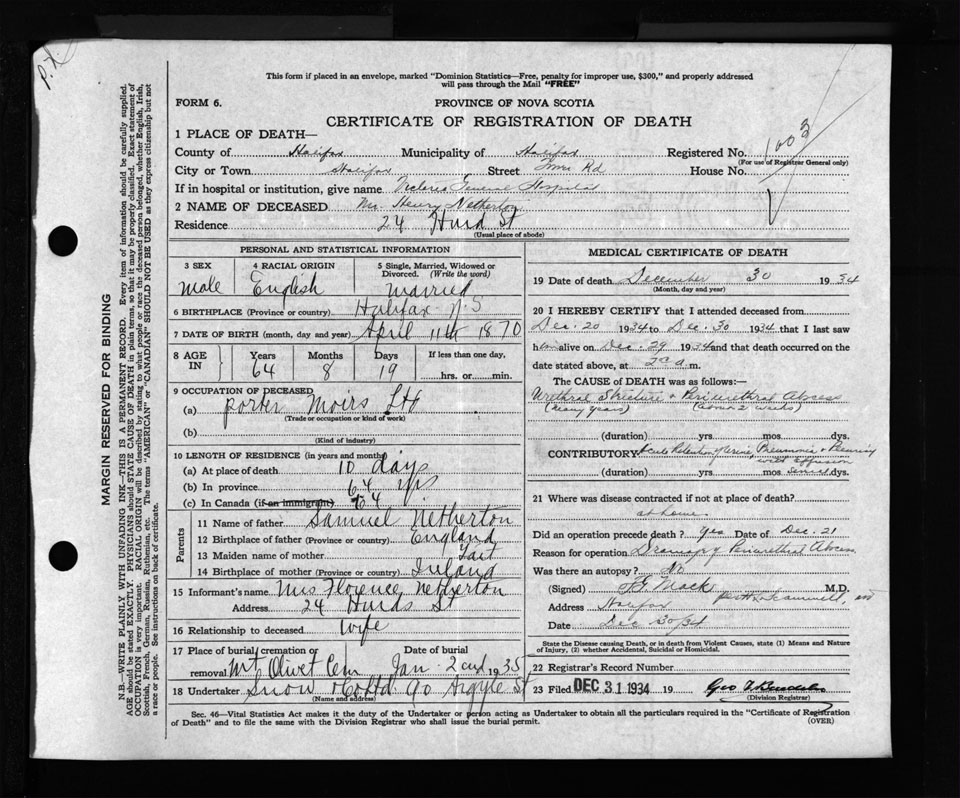 P.X.
This form if placed in an envelope, marked "Dominion Statistics—Free, penalty for improper use, $300," and properly addressed
will pass through the Mail "FREE"
FORM 6.
PROVINCE OF NOVA SCOTIA
CERTIFICATE OF REGISTRATION OF DEATH
1 PLACE OF DEATH—
County of Halifax Municipality of Halifax Registered No. 1003
(For use of Registrar General only)
City or Town Halifax Street Tower Rd House No.
If in hospital or institution, give name Victoria General Hospital
2 NAME OF DECEASED Mr. Henry Netherton
Residence 24 Hurd St
(Usual place of abode)
MARGIN RESERVED FOR BINDING
N.B.—WRITE PLAINLY WITH UNFADING INK—THIS IS A PERMANENT RECORD. Every item of information should be carefully supplied.
AGE should be stated EXACTLY. PHYSICIANS should STATE CAUSE OF DEATH in plain terms, so that it may be properly classified. Exact statement of
OCCUPATION is very important. RACIAL ORIGIN will be described by stating to what people or race the deceased person belonged, whether English, Irish,
Scottish, French, German, Russian, Ruthenian, etc. The terms "AMERICAN" or "CANADIAN" SHOULD NOT BE USED as they express citizenship but not
a race or people. See instructions on back of certificate.
PERSONAL AND STATISTICAL INFORMATION
3 SEX 4 RACIAL ORIGIN 5 Single, Married, Widowed or
Divorced. (Write the word)
Male English Married
6 BIRTHPLACE (Province or country) Halifax N.S
7 DATE OF BIRTH (month, day and year) April 11th 1870
8 AGE IN Years Months Days If less than one day,
64 8 19 hrs. or min.
9 OCCUPATION OF DECEASED
(a) porter Moirs Ltd
(Trade or occupation or kind of work)
(b)
(Kind of industry)
10 LENGTH OF RESIDENCE (in years and months)
(a) At place of death 10 days
(b) In province 64 yrs
(c) In Canada (if an immigrant) 64
Parents
11 Name of father Samuel Netherton
12 Birthplace of father (Province or country) England
13 Maiden name of mother Tait
14 Birthplace of mother (Province or country) Ireland
15 Informant's name Mrs Florence Netherton
Address 24 Hurds St
16 Relationship to deceased Wife
17 Place of burial, cremation or removal Date of burial
Mt Olivet Cem Jan 2nd 1935
18 Undertaker Snow & Co Ltd 90 Argyle St
(Name and address)
MEDICAL CERTIFICATE OF DEATH
19 Date of death December 30 1934
(Month, day and year)
20 I HEREBY CERTIFY that I attended deceased from
Dec. 20 1934 to Dec. 30 1934 that I last saw
him alive on Dec. 29 1934 and that death occurred on the
date stated above, at a m.
The CAUSE OF DEATH was as follows:—
Urethral Stricture & Periurethral Abscess
(many years) (about 2 weeks)
(duration) yrs. mos. dys.
CONTRIBUTORY Acute Retention of urine, Pneumonia & Pleurisy
with effusion
(duration) yrs. mos. several dys.
21 Where was disease contracted if not at place of death?
at home
Did an operation precede death? Yes Date of Dec 21
Reason for operation Drainage Periurethral Abscess
Was there an autopsy? No
(Signed) F.G. Mack M.D.
Address Halifax
Date Dec 30/34
State the Disease causing Death, or in death from Violent Causes, state (1) Means and Nature
of Injury, (2) whether Accidental, Suicidal or Homicidal.
22 Registrar's Record Number
23 Filed DEC 31 1934 19 Geo
(Division Registrar)
Sec. 46—Vital Statistics Act makes it the duty of the Undertaker or person acting as Undertaker to obtain all the particulars required in the "Certificate of Registration
of Death" and to file the same with the Division Registrar who shall issue the burial permit.
(OVER)